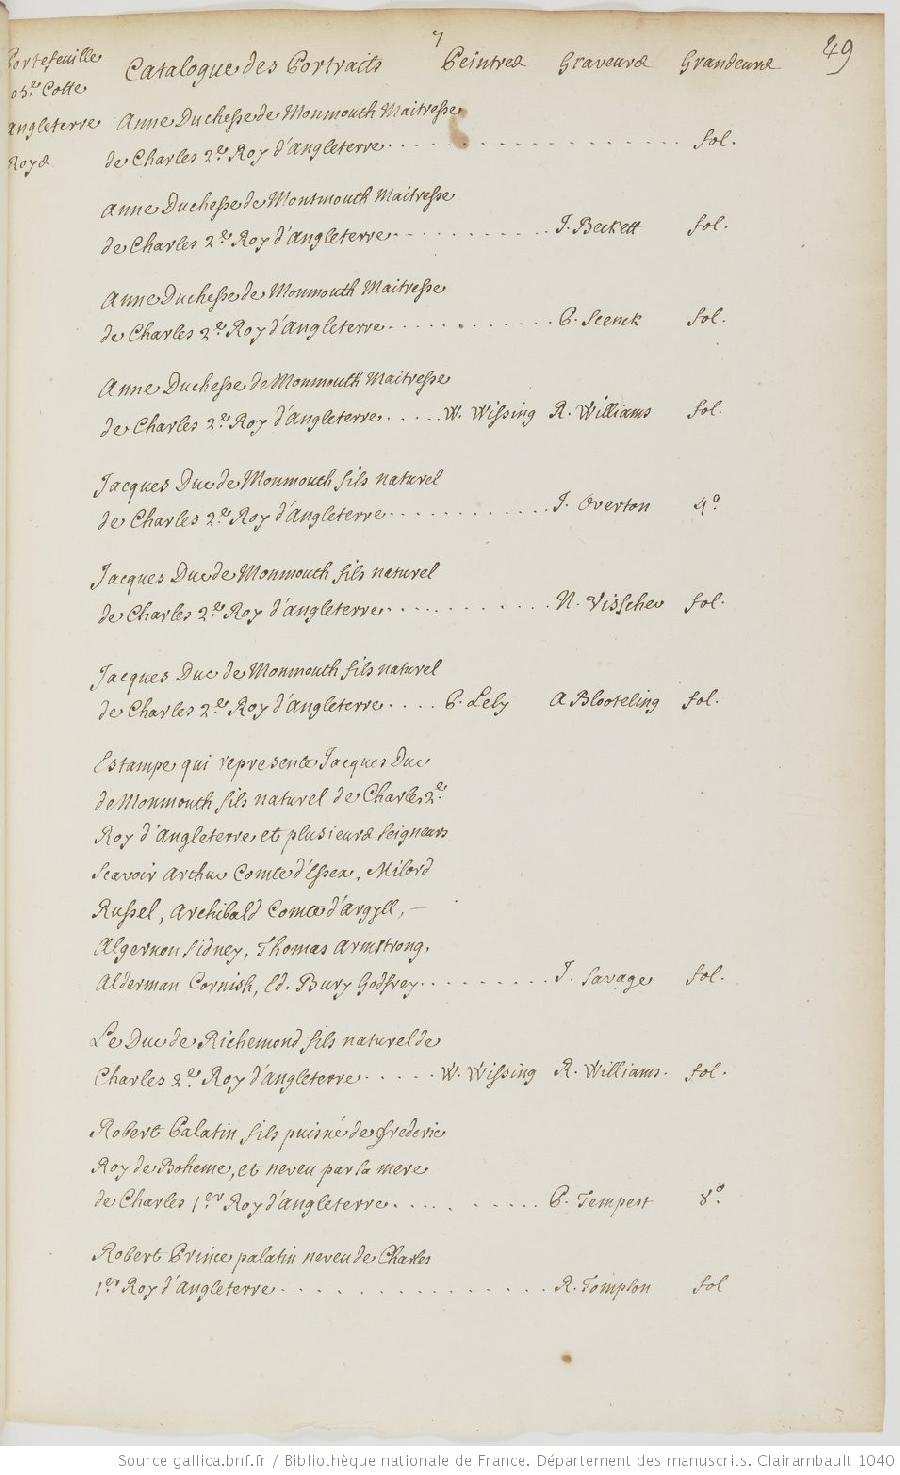 7
49
Portefeuille Catalogue des Portraits Peintres Graveurs Grandeurs
Cotte
Angleterre Anne Duchesse de Monmouth Maitresse
Roys de Charles 2.e Roy d'Angleterre . . . . . . . . . . . . . . . . . . . fol.
Anne Duchesse de Montmouth Maitresse
de Charles 2.e Roy d'Angleterre . . . . . . . . . . . J. Beckett fol.
Anne Duchesse de Monmouth Maitresse
de Charles 2.e Roy d'Angleterre . . . . . . . . . . . P. Scenck fol.
Anne Duchesse de Monmouth Maitresse
de Charles 2.e Roy d'Angleterre . . . . . W. Wissing R. Williams fol.
Jacques Duc de Monmouth fils naturel
de Charles 2.e Roy d'Angleterre . . . . . . . . . . . J. Overton 4.o
Jacques Duc de Monmouth fils naturel
de Charles 2.e Roy d'Angleterre . . . . . . . . . . . N. Visscher fol.
Jacques Duc de Monmouth fils naturel
de Charles 2.e Roy d'Angleterre . . . . P. Lely A Blooteling fol.
Estampe qui represente Jacques Duc
de Monmouth fils naturel de Charles 2.e
Roy d'Angleterre et plusieurs Seigneurs
Scavoir Arthur Comte d'Essex, Milord
Russel, Archibald Comte d'Argyll, —
Algernon Sidney, Thomas Armstrong,
Alderman Cornish, Ed. Bury Godfrey . . . . . . . . . J. Savage fol.
Le Duc de Richemond fils naturel de
Charles 2.e Roy d'Angleterre . . . . . W. Wissing R. Williams. fol.
Robert Palatin fils puisné de Frederic
Roy de Boheme, et neveu par la mere
de Charles 1.er Roy d'Angleterre . . . . . . . . . . P. Tempest 8.o
Robert Prince palatin neveu de Charles
1.er Roy d'Angleterre . . . . . . . . . . . . . . . . R. Tompson fol
Source gallica.bnf.fr / Bibliothèque nationale de France. Département des manuscrits. Clairambault 1040